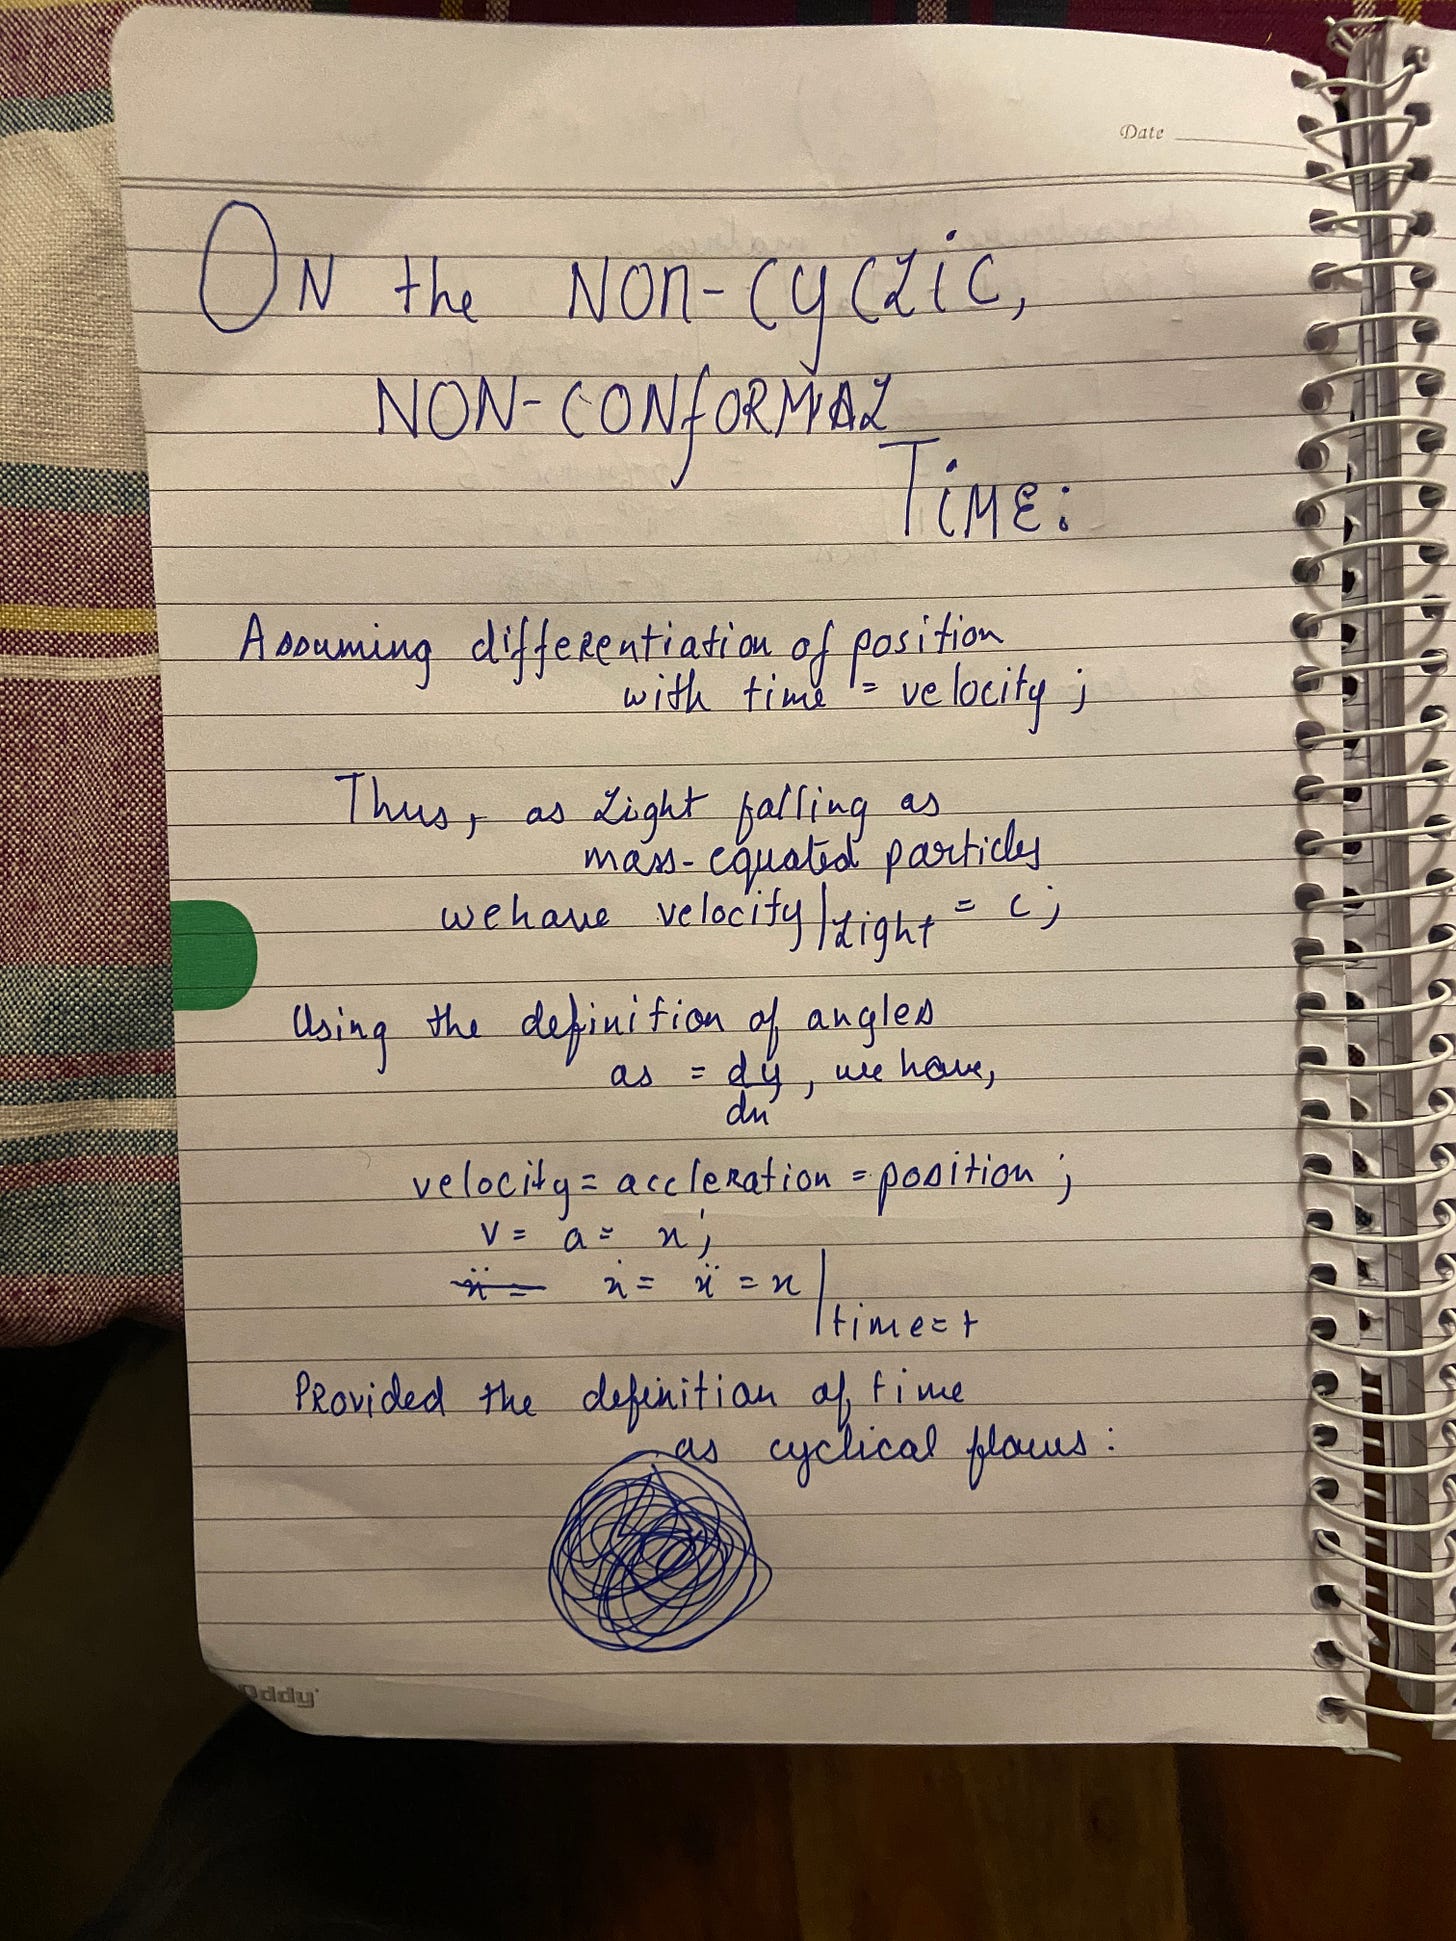 Date
ON the NON-CYCLIC,
NON-CONFORMAL
TIME:
Assuming differentiation of position
with time = velocity ;
Thus, as Light falling as
mass-equated particles
we have velocity|Light = c ;
Using the definition of angles
as = dy/dx, we have,
velocity = accleration = position ;
v = a = x ;
ẍ = ẋ = ẍ = x | time = t
Provided the definition of time
as cyclical flows :
Oddy